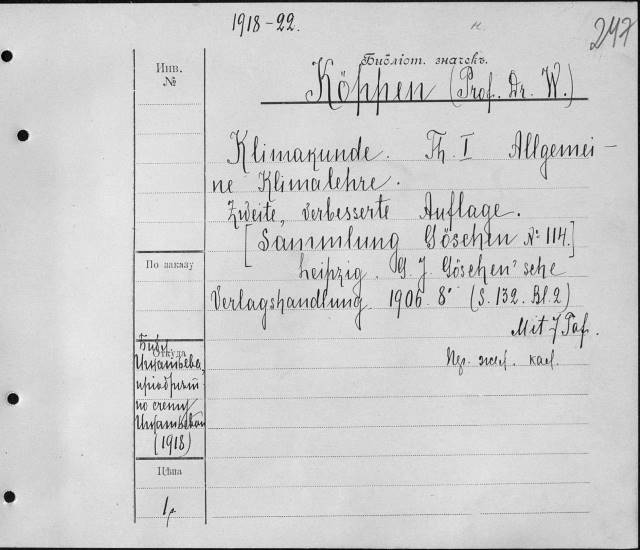 1918-22.
247
Библіот. значекъ.
Инв.
№
Köppen (Prof. Dr. W.)
Klimakunde. Th. I Allgemei-
ne Klimalehre.
Zweite, verbesserte Auflage.
[Sammlung Göschen № 114.]
По заказу
Leipzig. G. J. Göschen'sche
Verlagshandlung. 1906. 8° (S. 132. Bl. 2)
Mit 7 Taf.
Откуда
Библ.
Игнатьева,
по счету
(1918)
Цѣна
1 р